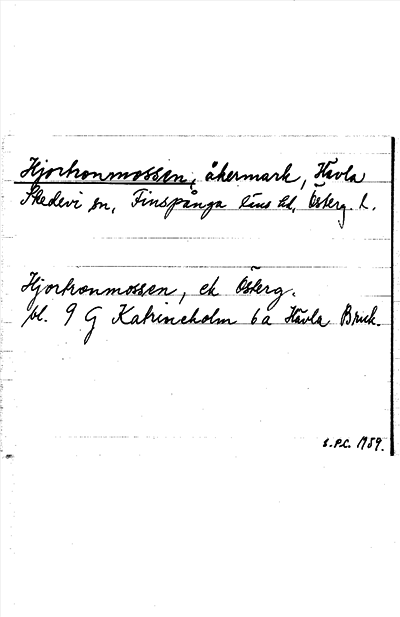 Hjortronmossen, åkermark, Hävla
Skedevi sn, Finspånga läns hd, Österg. L.
Hjortronmossen, ek Österg.
bl. 9 G Katrineholm 6a Hävla Bruk.
S.P.C. 1959.